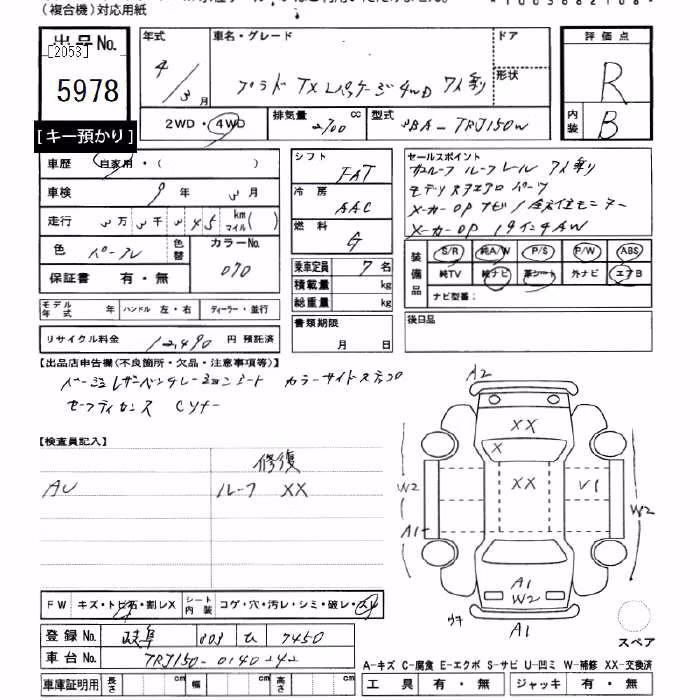 (複合機)対応用紙
出品No.
[2053]
5978
[キー預かり]
年式
4/3月
車名・グレード
プラド TX Lパッケージ 4WD 7人乗り
ドア
形状
評価点
R
内装
B
2WD・4WD
排気量 2700 cc
型式 CBA-TRJ150W
車歴 自家用・( )
車検 9年3月
走行 3万3千345 km マイル( )
色 パール
色替
カラーNo. 070
保証書 有・無
モデル年式 年 ハンドル 左・右 ディーラー・並行
リサイクル料金 12,490 円 預託済
シフト FAT
冷房 AAC
燃料 G
乗車定員 7名
積載量 kg
総重量 kg
書類期限
月 日
セールスポイント
ルーフレール 7人乗り
モデリスタエアロパーツ
メーカーOPナビ/全方位モニター
メーカーOP 19インチAW
装備品
S/R 純A/W P/S P/W ABS
純TV 純ナビ 革シート 外ナビ エアB
ナビ型番:
後日品
【出品店申告欄(不良箇所・欠品・注意事項等)】
ベージュレザーベンチレーションシート カラーサイドステップ
セーフティセンス
【検査員記入】
修復
AU ルーフ XX
FW キズ・トビ石・割レX シート内装 コゲ・穴・汚レ・シミ・破レ・スレ
登録No. 岐阜 303 ひ 7450
車台No. TRJ150-0140242
車庫証明用 長さ cm 幅 cm 高さ cm
A2
XX
X
XX
V1
W2
A1
W2
A1
W2
A1
スペア
A-キズ C-腐食 E-エクボ S-サビ U-凹ミ W-補修 XX-交換済
工具 有・無 ジャッキ 有・無